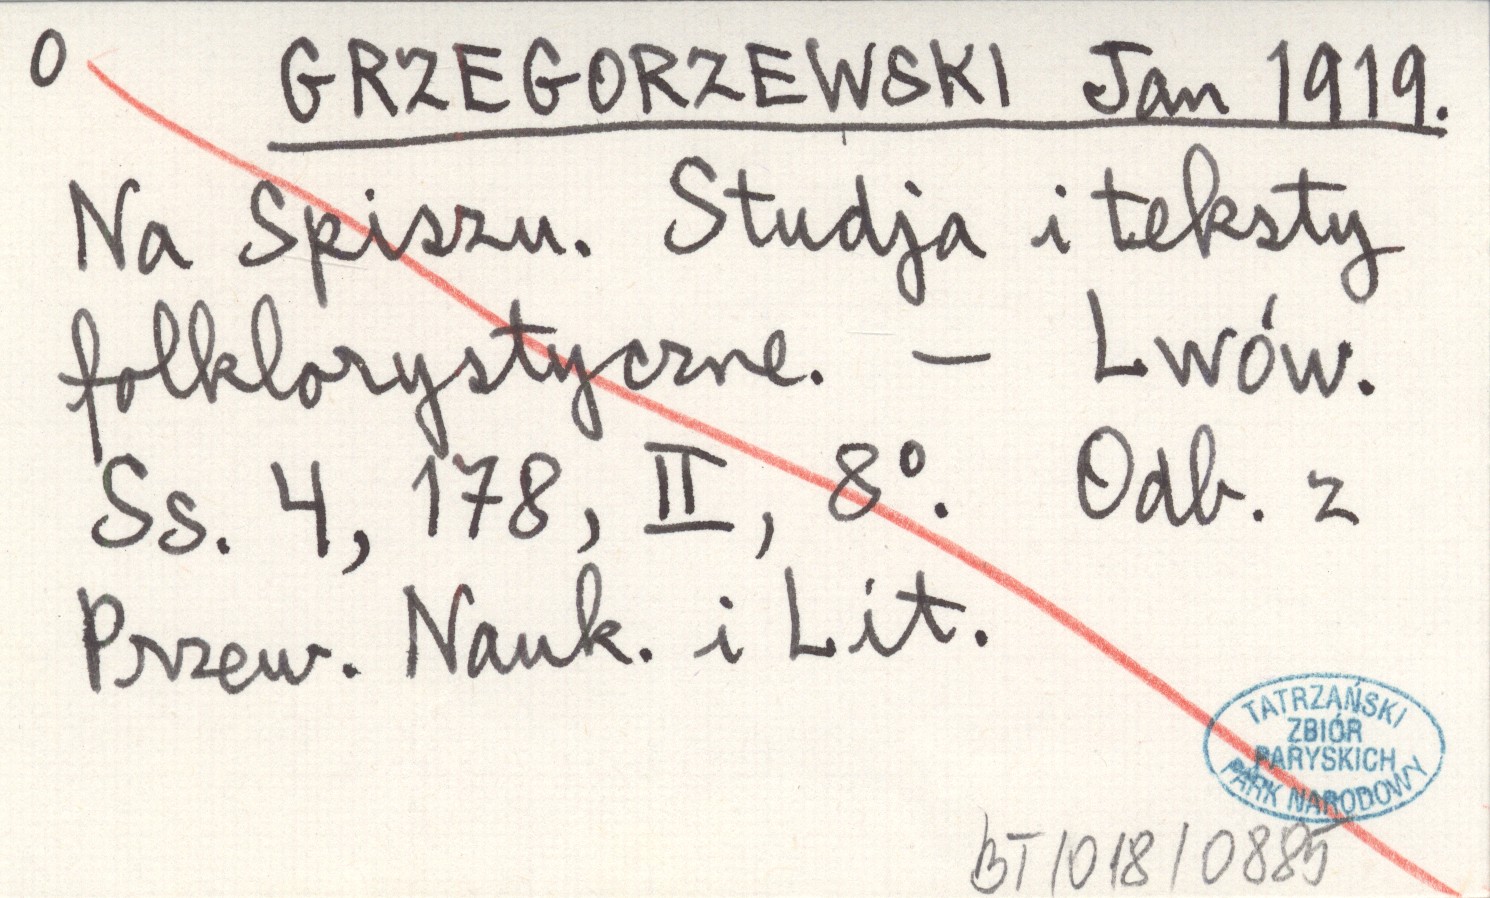 O
GRZEGORZEWSKI Jan 1919.
Na Spiszu. Studja i teksty
folklorystyczne. — Lwów.
Ss. 4, 178, II, 8º. Odb. z
Przew. Nauk. i Lit.
TATRZAŃSKI
ZBIÓR
PARYSKICH
PARK NARODOWY
BT/018/0885